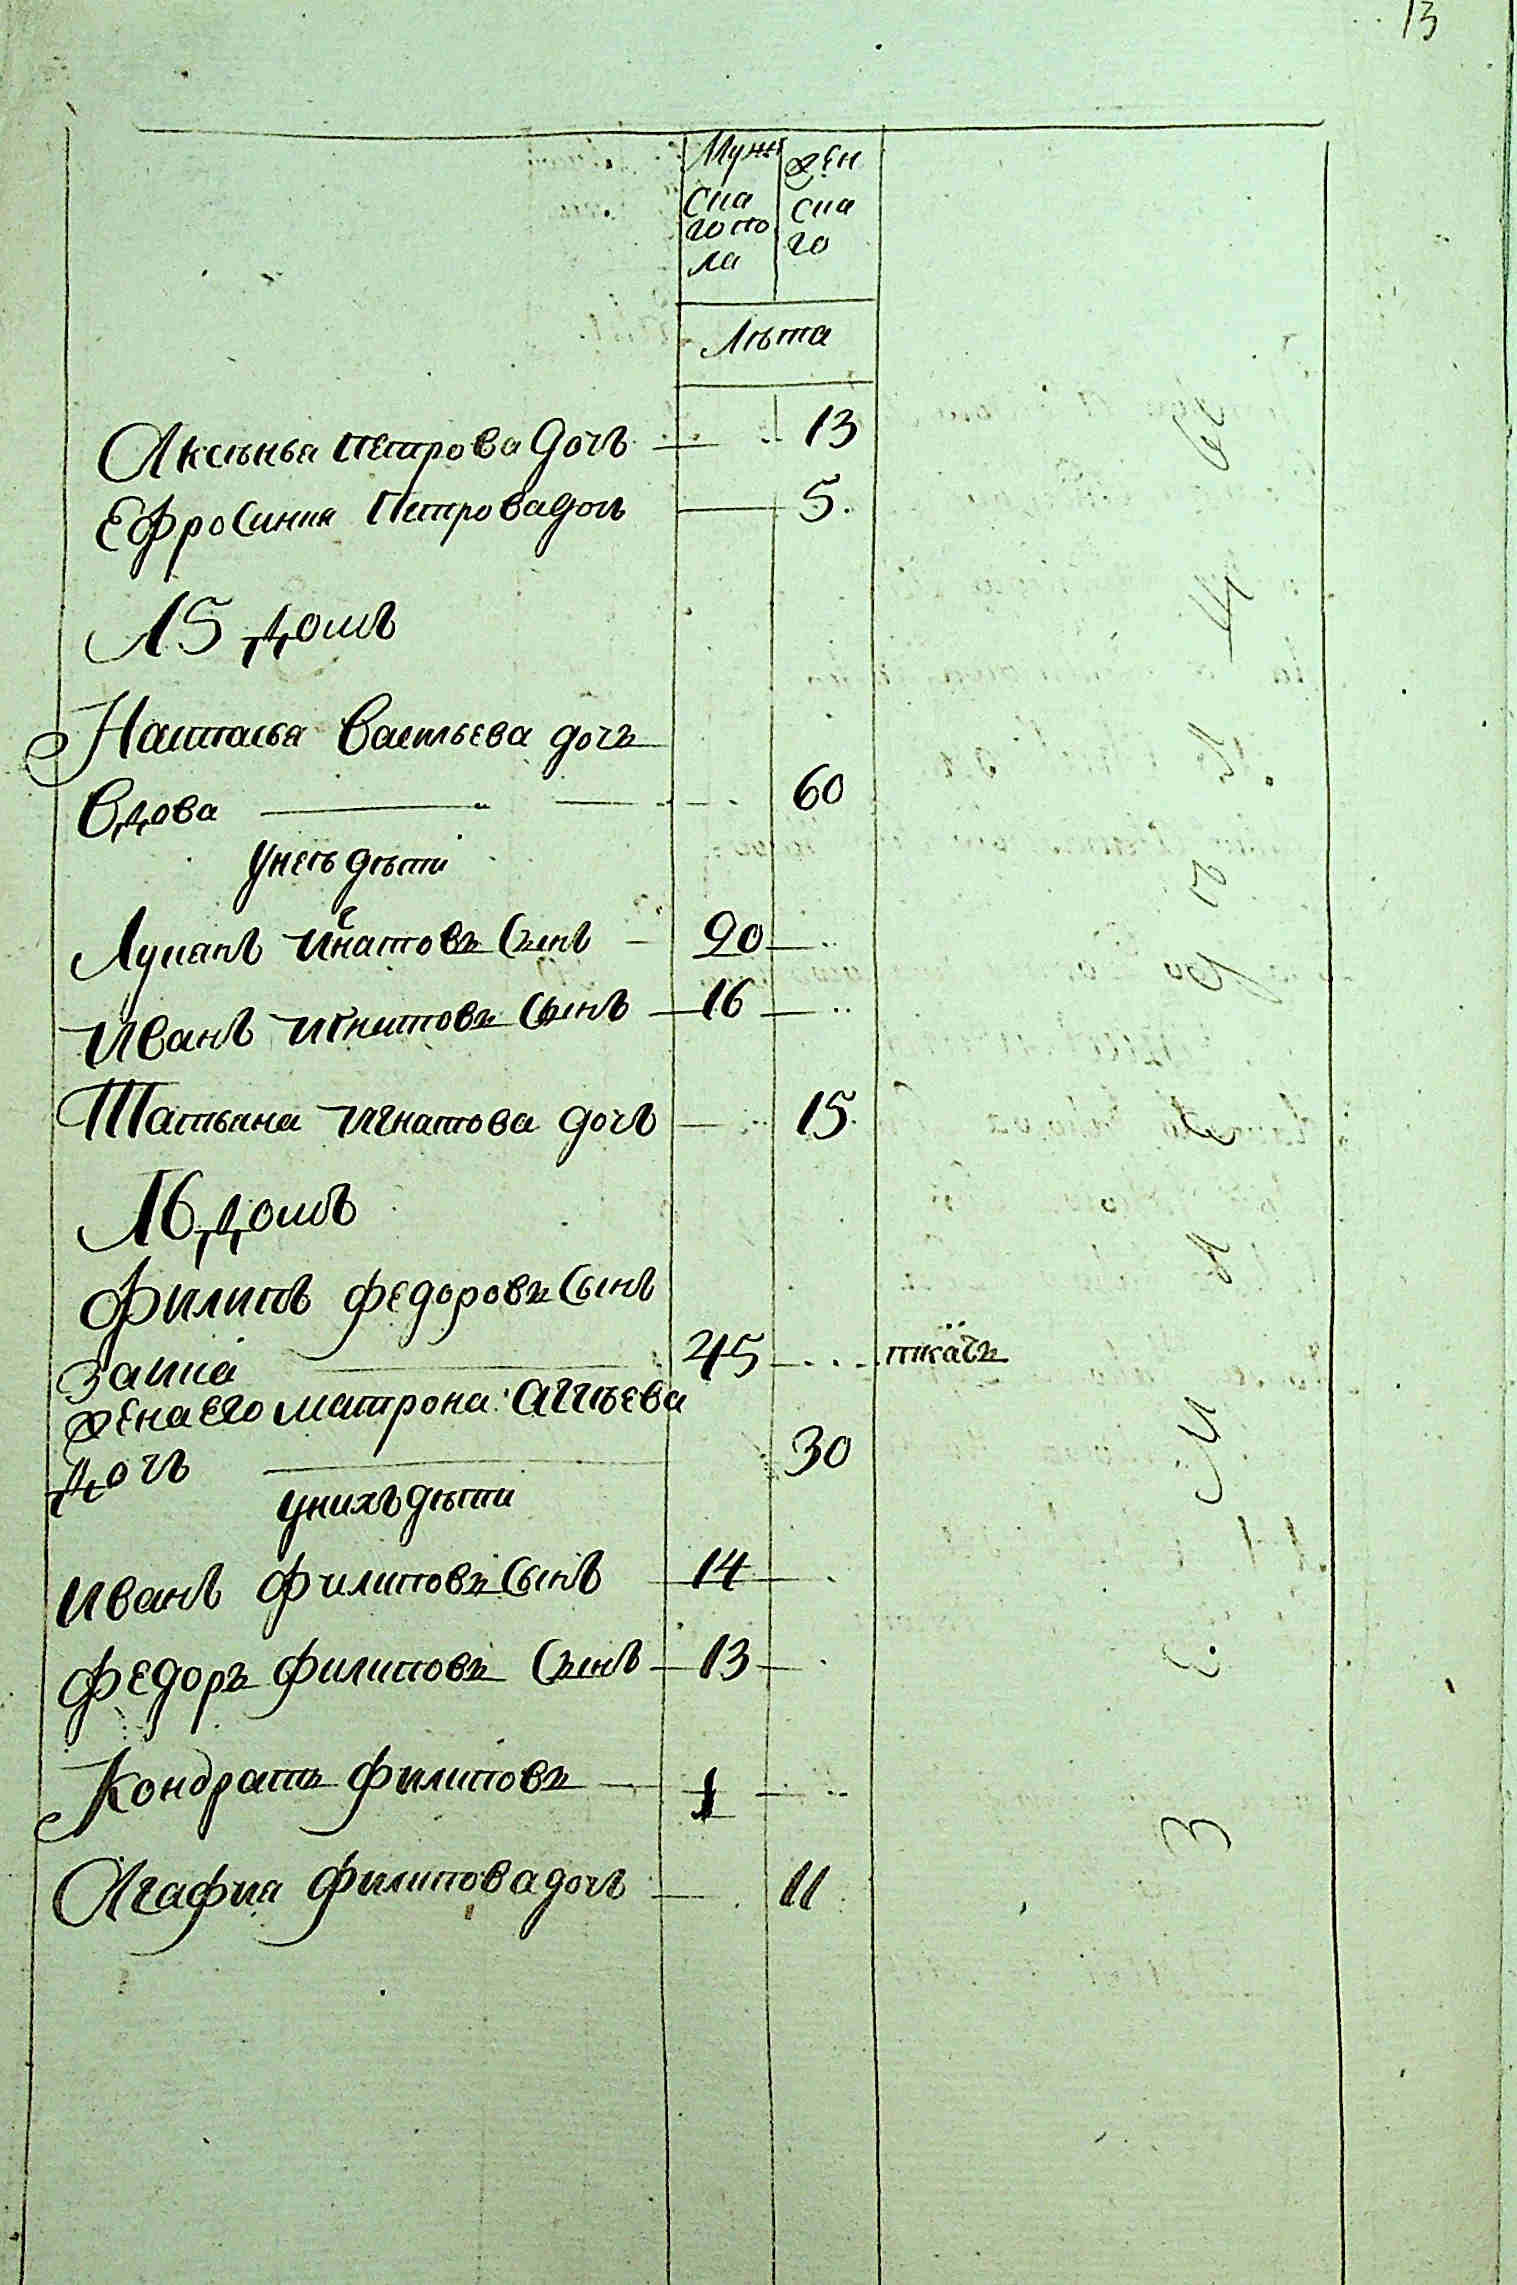 13
Мужескаго пола
Женскаго
Лѣта
Аксѣнья Петрова дочь 13
Ефросиния Петрова дочь 5.
15 домъ
Настасья Васильева дочь
Вдова 60
у неѣ дѣти
Лукапъ Игнатовъ Сынъ 20
Иванъ Игнатовъ Сынъ 16
Татьяна Игнатова дочь 15
16 домъ
Филипъ Федоровъ Сынъ
Заика 45 ткачь
Жена его Матрона Агѣева
дочь 30
у нихъ дѣти
Иванъ Филиповъ Сынъ 14
Федоръ Филиповъ Сынъ 13
Кондратъ Филиповъ 1
Агафиа Филипова дочь 11
З Е М Л Е